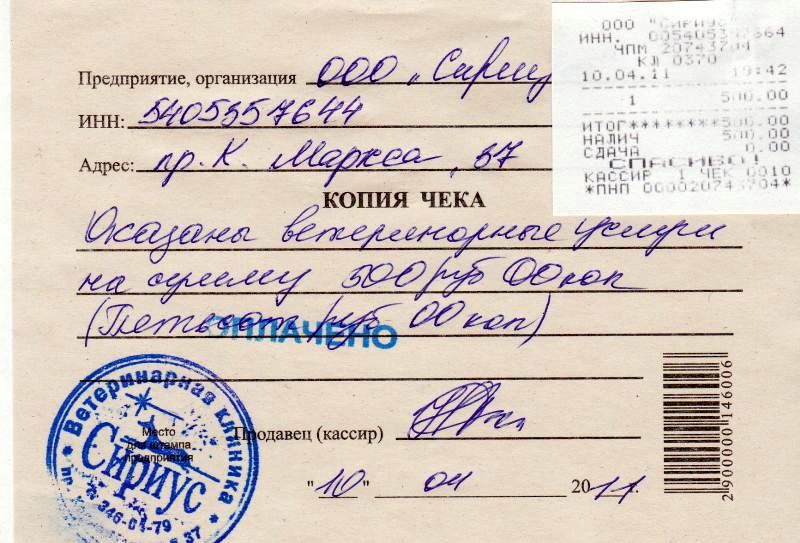 Предприятие, организация ООО „Сириус
ИНН: 5405357644
Адрес: пр. К. Маркса, 37
КОПИЯ ЧЕКА
Оказаны ветеринарные услуги
на сумму 500 руб 00 коп
(Пятьсот руб 00 коп)
ОПЛАЧЕНО
Продавец (кассир)
"10" 04 2011
Место
для штампа
предприятия
* Ветеринарная клиника *
Сириус
346-04-79
37
2 900000 146006
ООО "СИРИУС
ИНН.
ЧПМ 20743704
КЛ 0370
10.04.11 19:42
1 500.00
ИТОГ********500.00
НАЛИЧ 500.00
СДАЧА 0.00
СПАСИБО!
КАССИР 1 ЧЕК 0010
*ПНП 000020743704*